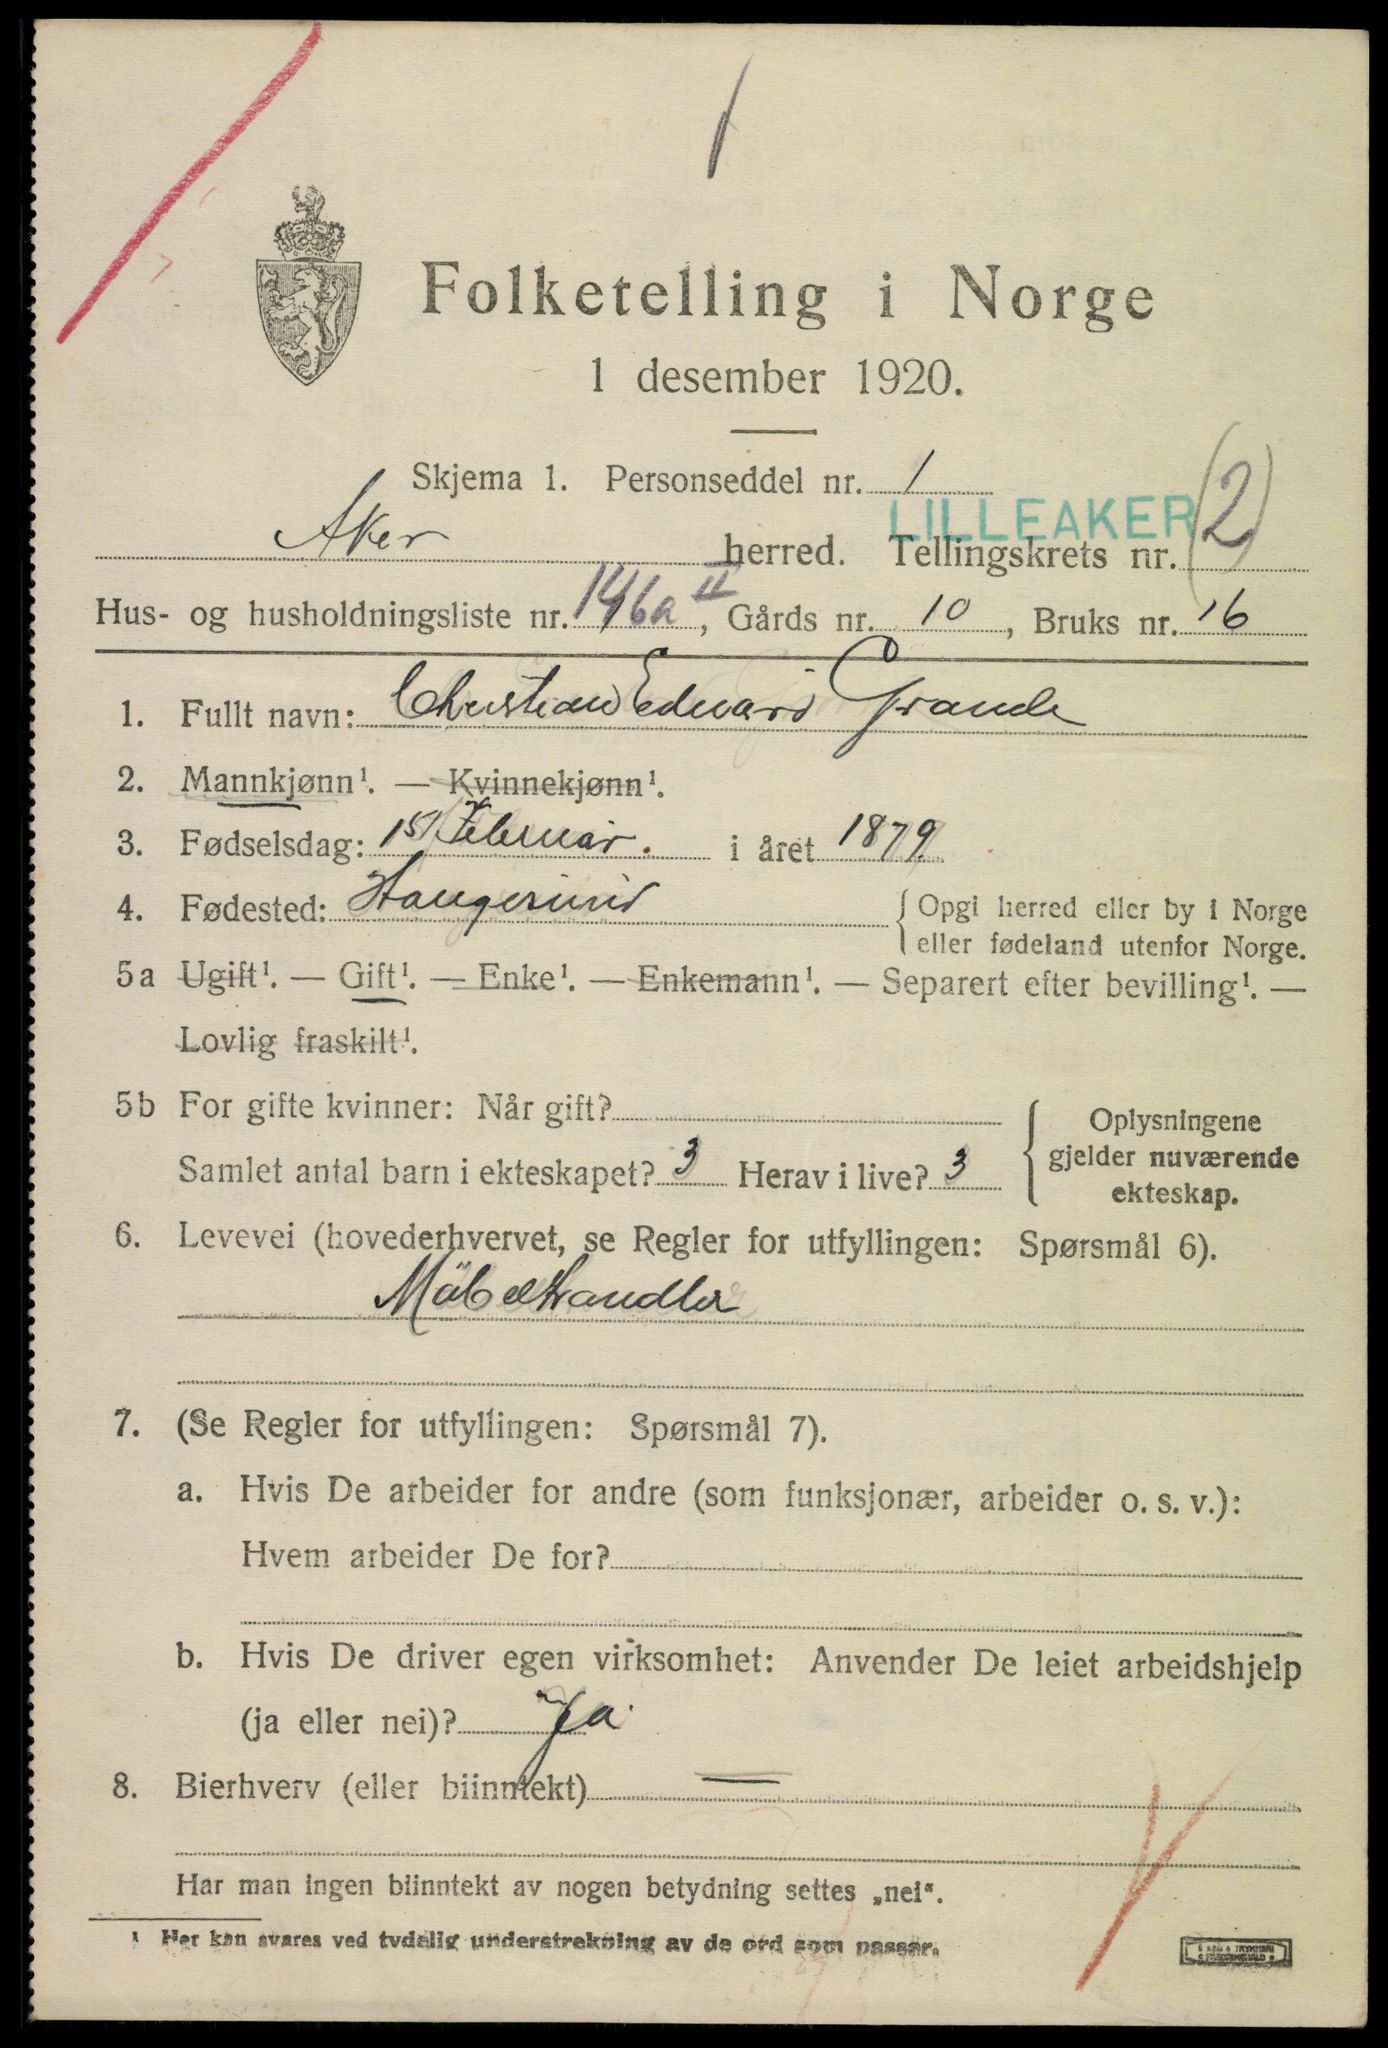 Folketelling i Norge
1 desember 1920.
Skjema 1. Personseddel nr. 1
LILLEAKER (2)
Aker herred. Tellingskrets nr.
Hus- og husholdningsliste nr. 146a II, Gårds nr. 10, Bruks nr. 16
1. Fullt navn: Christian Eduard Grande
2. Mannkjønn¹. — Kvinnekjønn¹.
3. Fødselsdag: 15/ Februar. i året 1879.
4. Fødested: Haugesund
{ Opgi herred eller by i Norge
eller fødeland utenfor Norge.
5a Ugift¹. — Gift¹. — Enke¹. — Enkemann¹. — Separert efter bevilling¹. —
Lovlig fraskilt¹.
5b For gifte kvinner: Når gift?
Samlet antal barn i ekteskapet? 3 Herav i live? 3
{ Oplysningene
gjelder nuværende
ekteskap.
6. Levevei (hovederhvervet, se Regler for utfyllingen: Spørsmål 6).
Möbelhandler
7. (Se Regler for utfyllingen: Spørsmål 7).
a. Hvis De arbeider for andre (som funksjonær, arbeider o. s. v.):
Hvem arbeider De for?
b. Hvis De driver egen virksomhet: Anvender De leiet arbeidshjelp
(ja eller nei)? Ja
8. Bierhverv (eller biinntekt) —
Har man ingen biinntekt av nogen betydning settes „nei“.
¹ Her kan svares ved tydelig understrekning av de ord som passer.